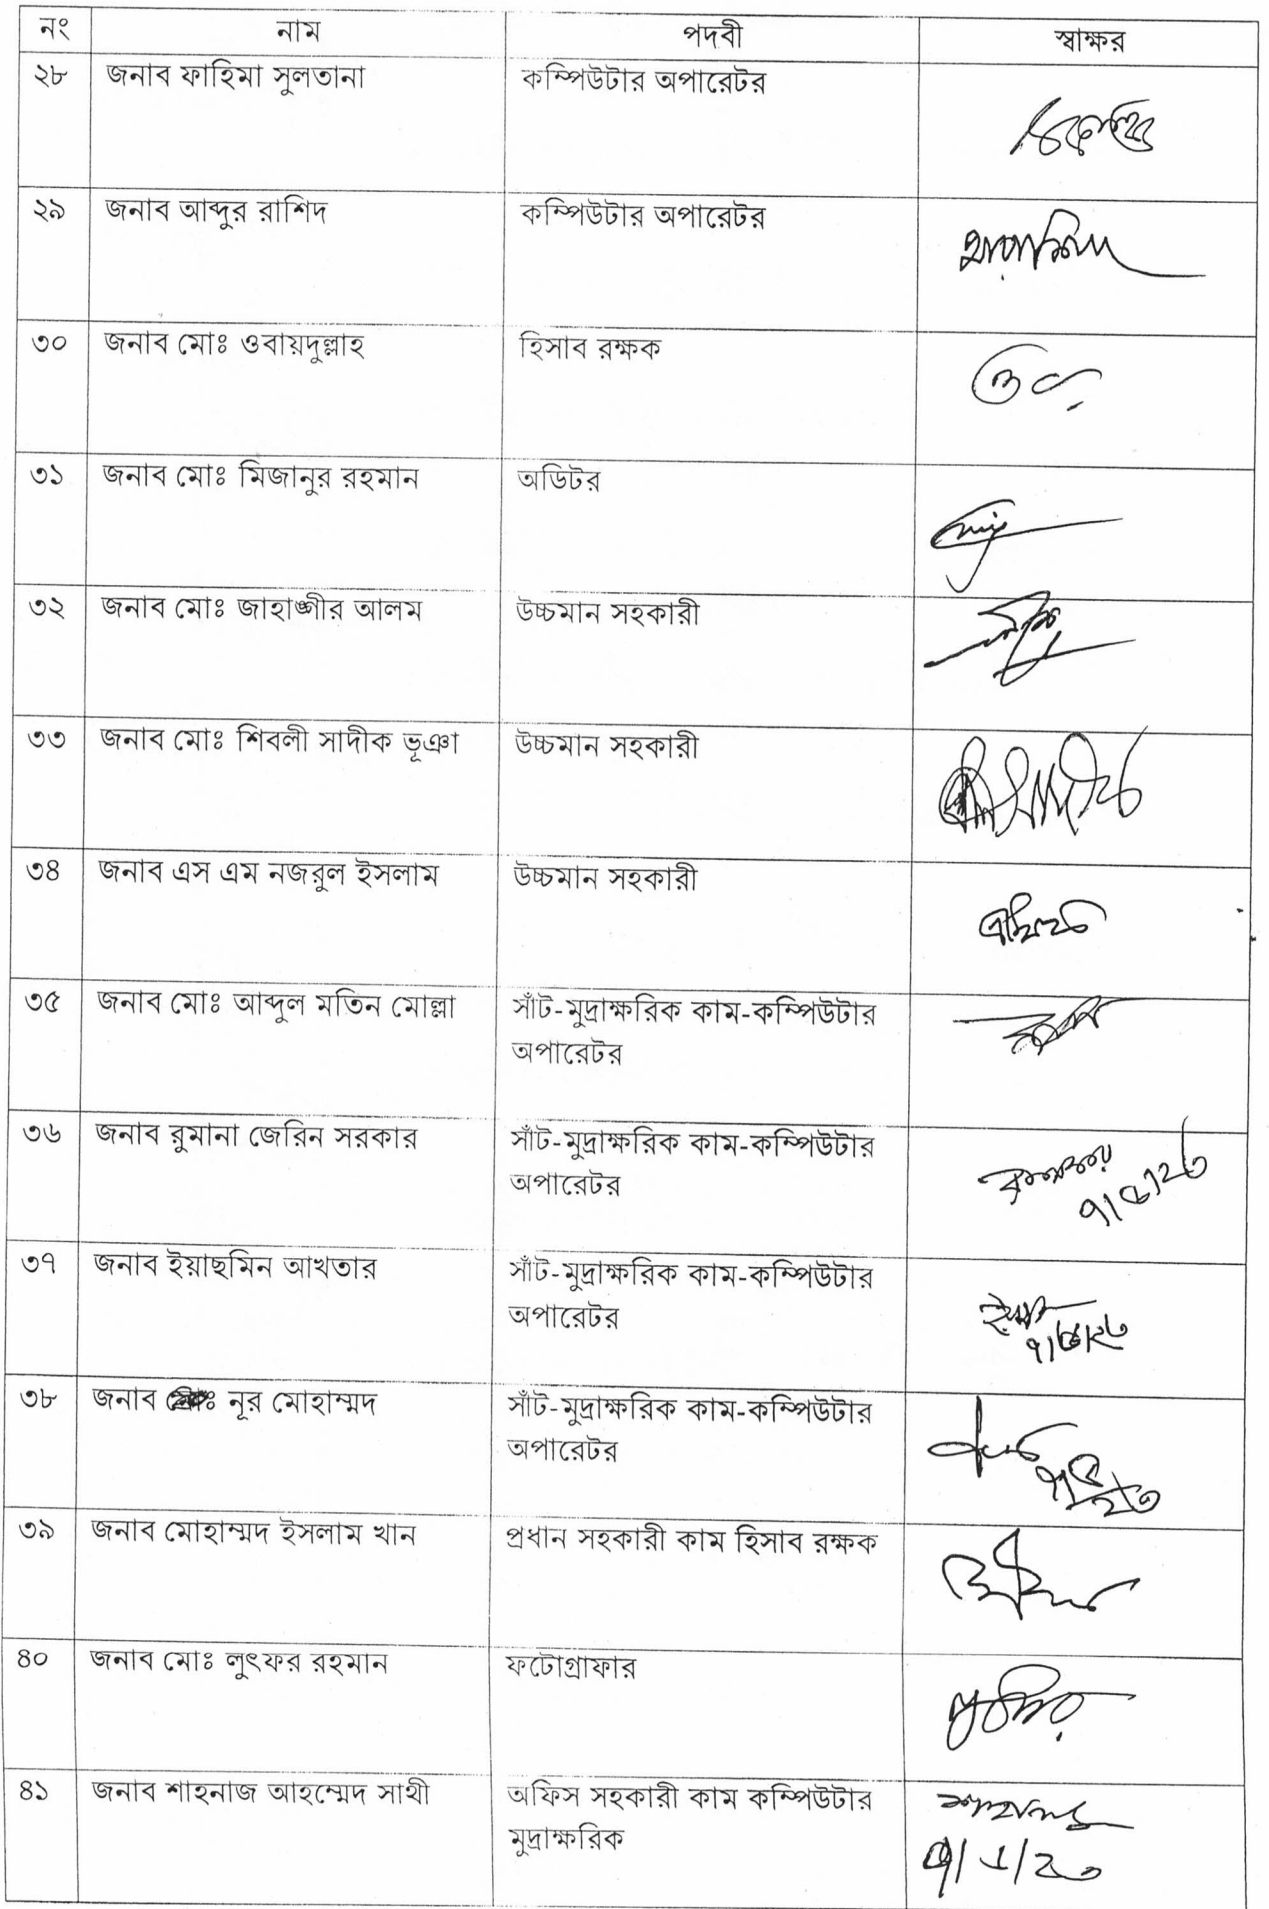 নং নাম পদবী স্বাক্ষর
২৮ জনাব ফাহিমা সুলতানা কম্পিউটার অপারেটর
২৯ জনাব আব্দুর রাশিদ কম্পিউটার অপারেটর
৩০ জনাব মোঃ ওবায়দুল্লাহ হিসাব রক্ষক
৩১ জনাব মোঃ মিজানুর রহমান অডিটর
৩২ জনাব মোঃ জাহাঙ্গীর আলম উচ্চমান সহকারী
৩৩ জনাব মোঃ শিবলী সাদীক ভূঞা উচ্চমান সহকারী
৩৪ জনাব এস এম নজরুল ইসলাম উচ্চমান সহকারী
৩৫ জনাব মোঃ আব্দুল মতিন মোল্লা সাঁট-মুদ্রাক্ষরিক কাম-কম্পিউটার
অপারেটর
৩৬ জনাব রুমানা জেরিন সরকার সাঁট-মুদ্রাক্ষরিক কাম-কম্পিউটার
অপারেটর
৩৭ জনাব ইয়াছমিন আখতার সাঁট-মুদ্রাক্ষরিক কাম-কম্পিউটার
অপারেটর
৩৮ জনাব নূর মোহাম্মদ সাঁট-মুদ্রাক্ষরিক কাম-কম্পিউটার
অপারেটর
৩৯ জনাব মোহাম্মদ ইসলাম খান প্রধান সহকারী কাম হিসাব রক্ষক
৪০ জনাব মোঃ লুৎফর রহমান ফটোগ্রাফার
৪১ জনাব শাহনাজ আহম্মেদ সাথী অফিস সহকারী কাম কম্পিউটার
মুদ্রাক্ষরিক